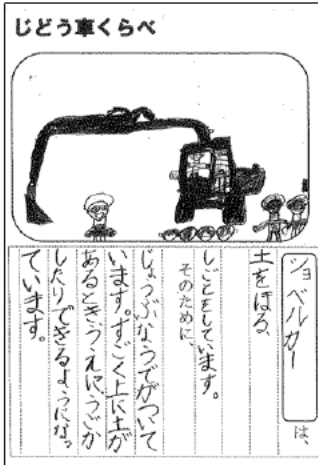 じどう車くらべ
ショベルカー は、
土をほる、
しごとをしています。
そのために、
じょうぶなうでがついて
います。すごく上に土が
あるとき、うえにうごか
したりできるようになっ
ています。